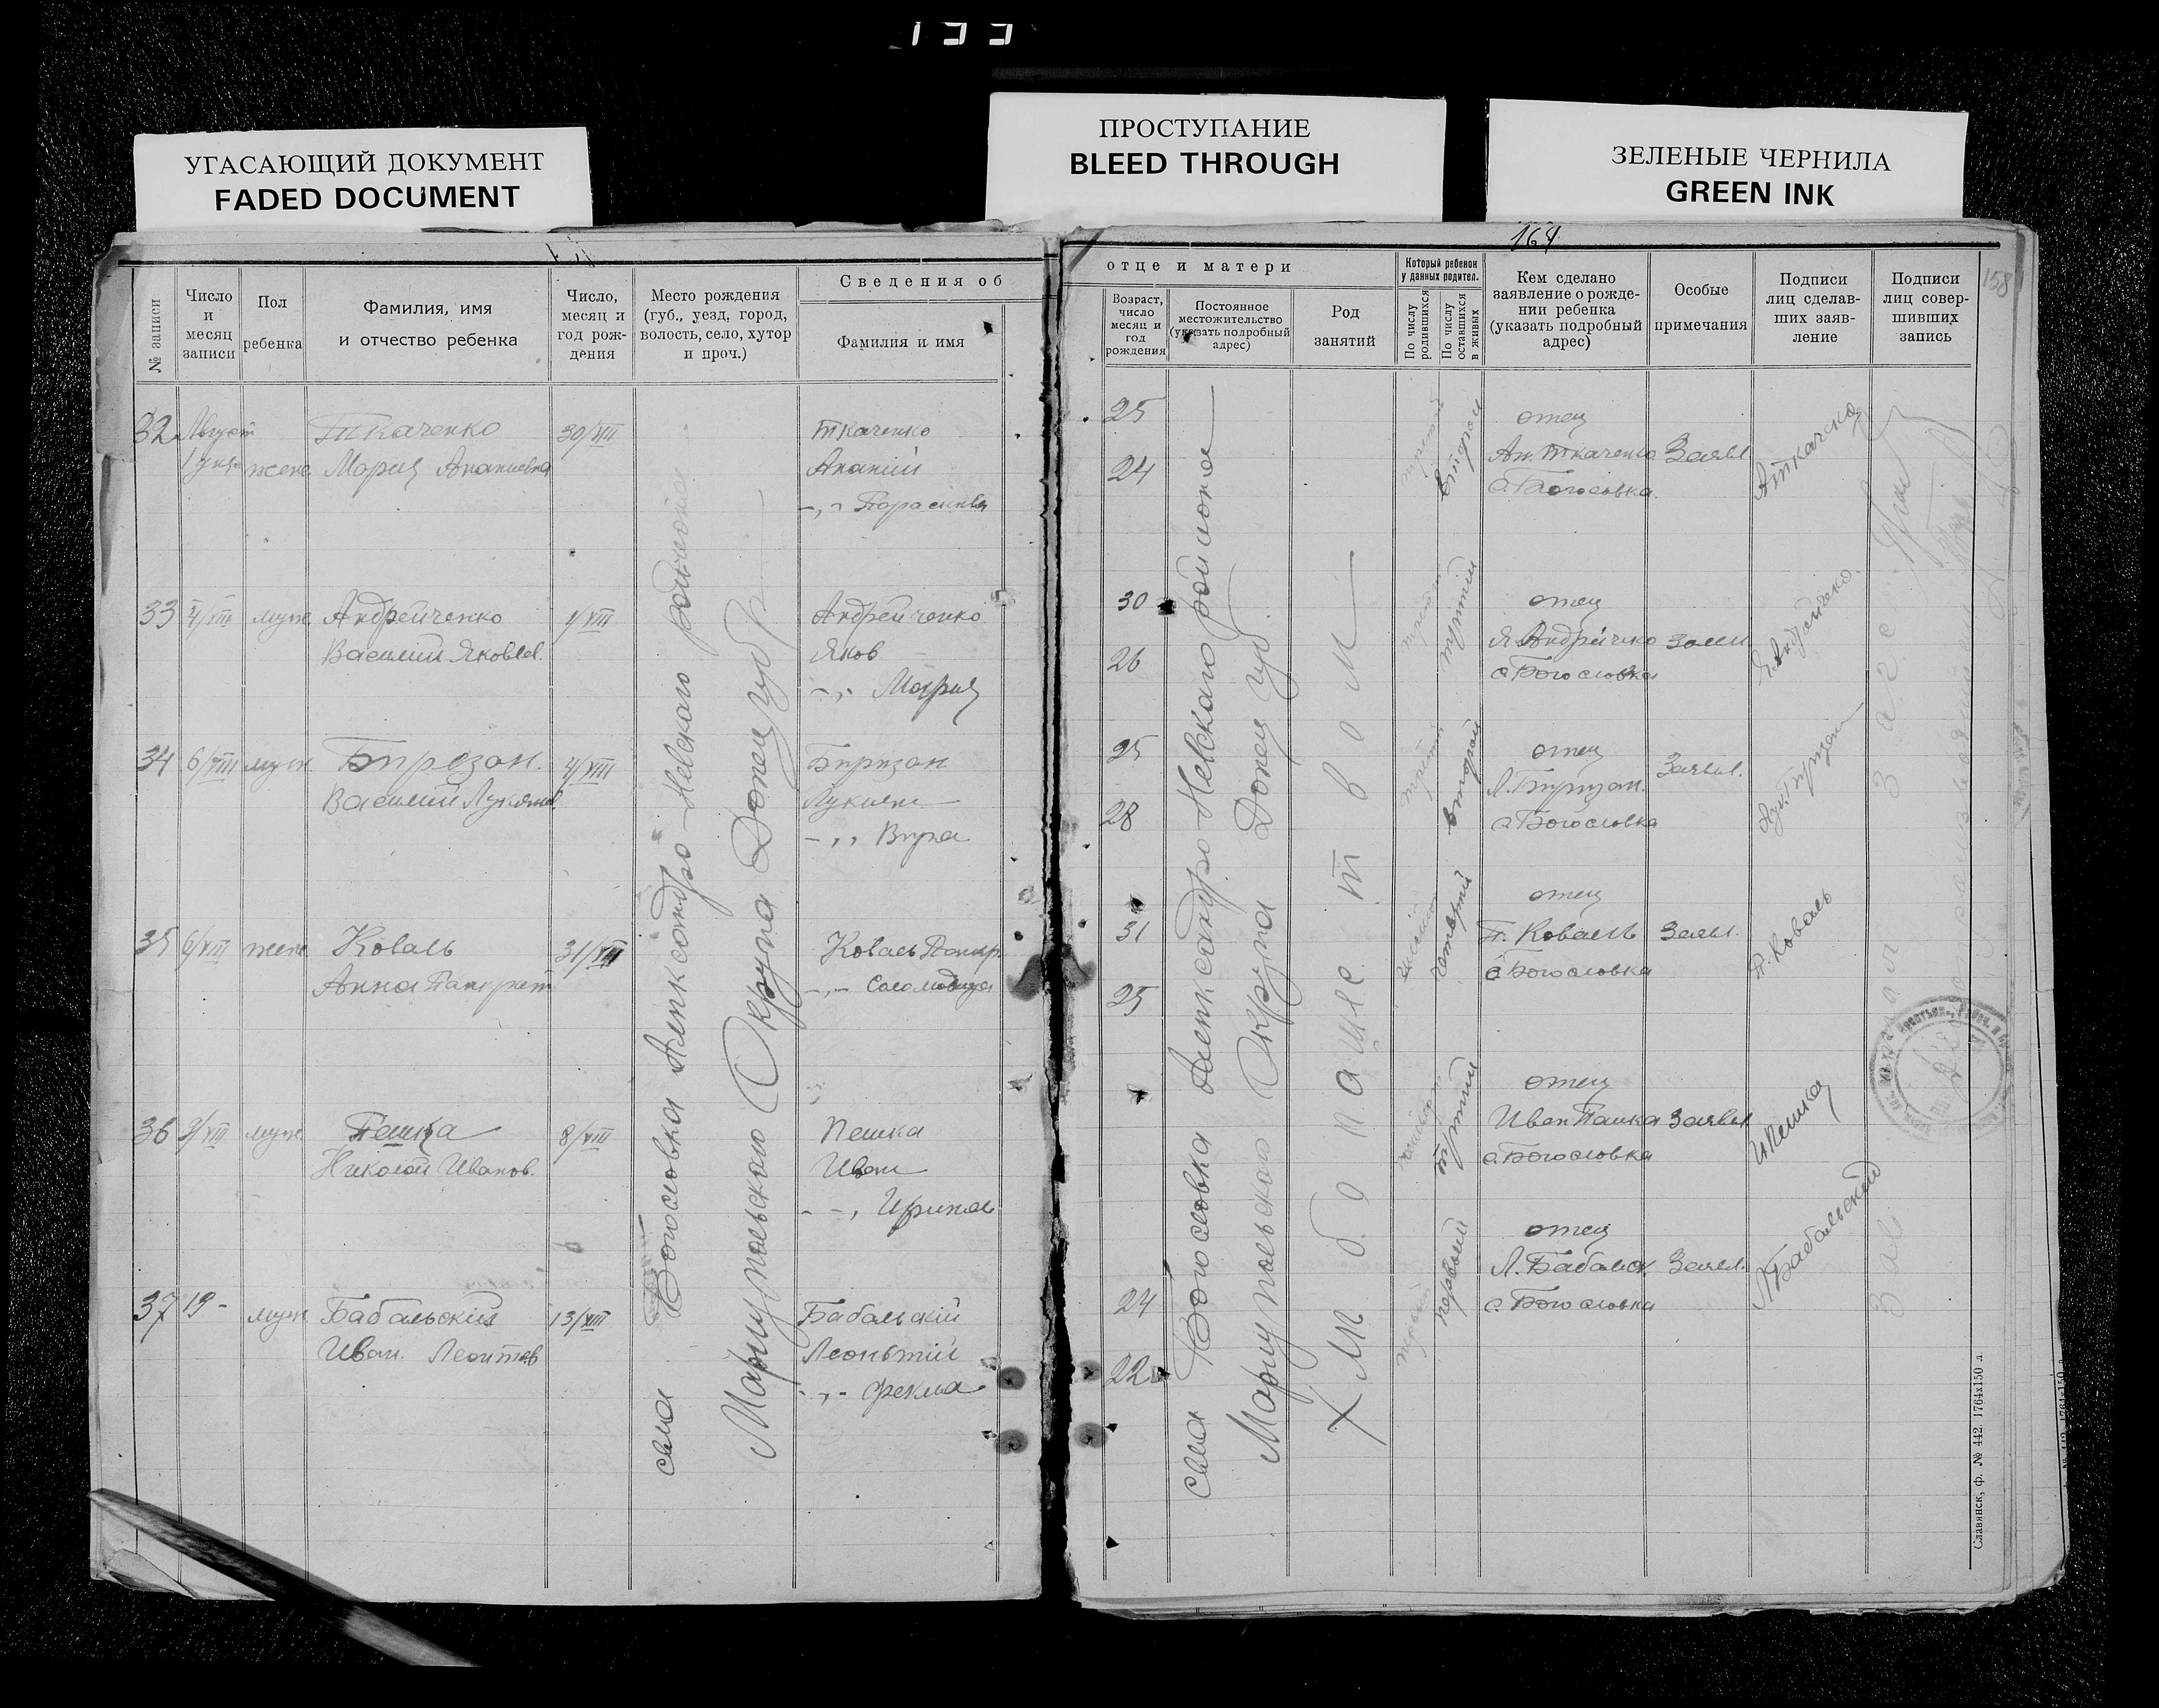 133
УГАСАЮЩИЙ ДОКУМЕНТ
FADED DOCUMENT
ПРОСТУПАНИЕ
BLEED THROUGH
ЗЕЛЕНЫЕ ЧЕРНИЛА
GREEN INK
164
158
№ записи
Число и месяц записи
Пол ребенка
Фамилия, имя и отчество ребенка
Число, месяц и год рождения
Место рождения (губ., уезд, город, волость, село, хутор и проч.)
Сведения об
Фамилия и имя
отце и матери
Возраст, число месяц и год рождения
Постоянное местожительство (указать подробный адрес)
Род занятий
Который ребенок у данных родител.
По числу родившихся
По числу оставшихся в живых
Кем сделано заявление о рождении ребенка (указать подробный адрес)
Особые примечания
Подписи лиц сделавших заявление
Подписи лиц совершивших запись
32 Август Ткаченко 30/VII Ткаченко 25 отец
женс Мария Ананиевна Ананий 24 второй Ан. Ткаченко Заявл АТкаченко
-,,- Парасковья с. Богословка
33 4/VIII муж Андрейченко 1/VIII Андрейченко 30 третий отец
Василий Яковлев. Яков 26 Я Андрейчко заявл ЯАндрейченко.
-,,- Мария с Богословка
34 6/VIII муж. Бирезан. 4/VIII Биризан 25 второй отец
Василий Лукянов Лукиян 28 Л. Биризан. Заявл.
-,, Вира с. Богословка
35 6/VIII женс Коваль 31/VII Коваль Панкр. 31 отец
Анна Панкрат -,,- Соломония 25 П. Коваль Заявл. П. Коваль
с Богословка
36 9/VIII муж. Пешка 8/VIII Пешка третий отец
Николай Иванов. Иван Иван Пашка Заявл ИПешка
-,,- Ирина с. Богословка
37 19 - муж Бабальский 13/VIII Бабальский 24 первый отец
Иван. Леонтев Леонтий 22 Л. Бабальск. Заявл. ЛБабальский
-,,- Фекла с. Богословка
села Богословка Александро-Невского района
Мариупольского Округа Донец губ
села Богословка Александро Невского района
Мариупольского Округа Донец губ.
Хлебопашеством
Загс
Славянск, ф. № 442. 1764х150 л.